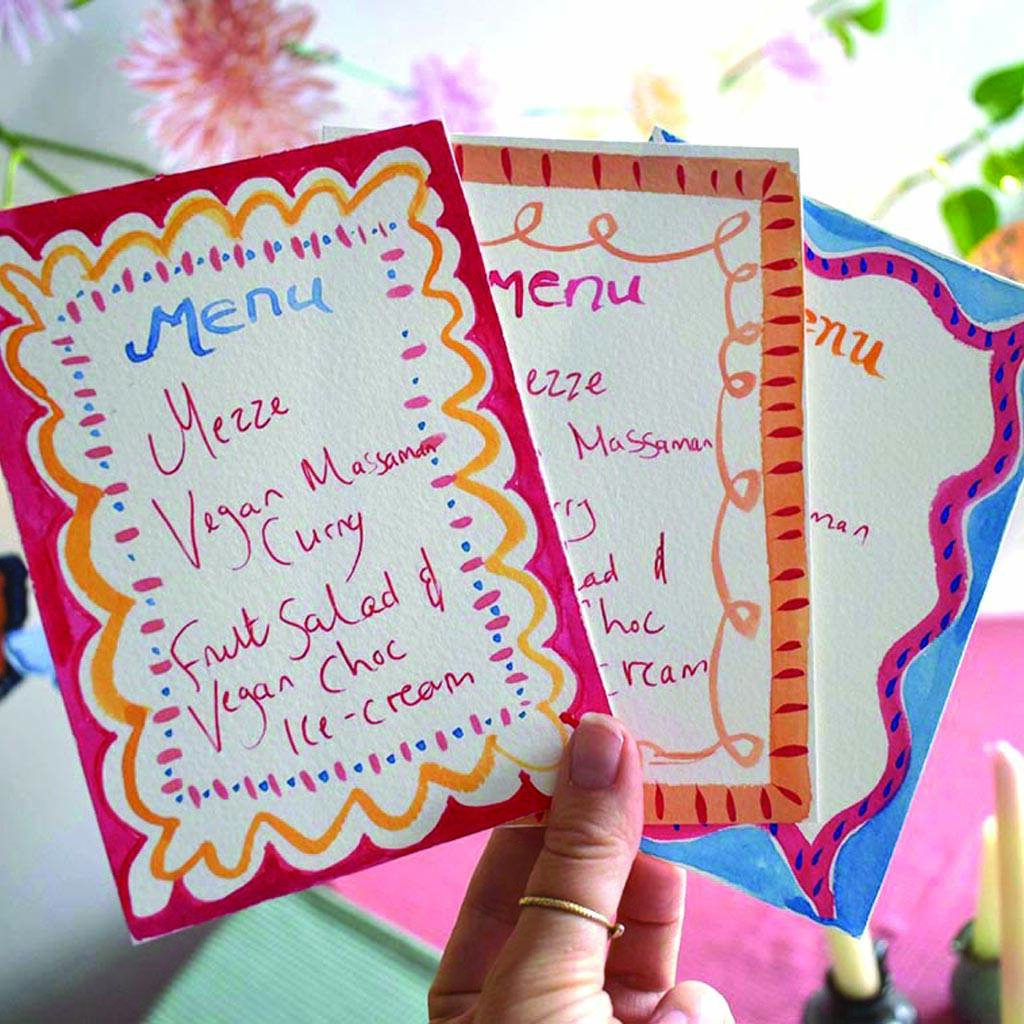 Menu
Mezze
Vegan Massaman
Curry
Fruit Salad &
Vegan Choc
Ice-cream
menu
ezze
Massaman
rry
ad &
Choc
cream
enu
man